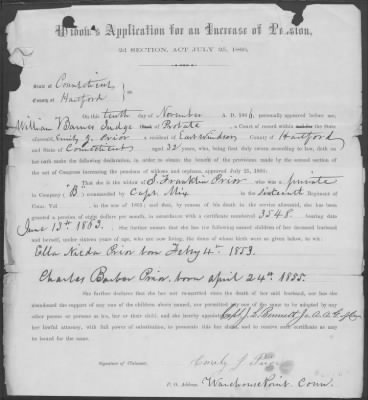 Widow's Application for an Increase of Pension,
2d SECTION, ACT JULY 25, 1866.
State of Connecticut
County of Hartford
On this tenth day of November A. D. 1866, personally appeared before me,
William V Barnes Judge of Probate, a Court of record within the State
aforesaid, Emily J. Prior a resident of East Windsor County of Hartford
State of Connecticut aged 32 years, who, being first duly sworn according to law, doth on
her oath make the following declaration, in order to obtain the benefit of the provisions made by the second section of the
act of Congress increasing the pensions of widows and orphans, approved July 25, 1866:
That she is the widow of B. Franklin Prior who was a private
in Company "B" commanded by Capt. Mix in the Sixteenth Regiment of
Conn. Vol in the war of 1861; and that, by reason of his death in the service aforesaid, she has been
granted a pension of eight dollars per month, in accordance with a certificate numbered 3548 bearing date
June 13th 1863. She further swears that she has the following named children of her deceased husband
and herself, under sixteen years of age, who are now living; the dates of whose birth were as given below, to wit:
Ella born Feby 4th 1853.
Charles Barber Prior, born april 24th 1855.
She further declares that she has not remarried since the death of her said husband, nor has she
abandoned the support of any one of the children above named, nor permitted any one of the same to be adopted by any
other person or persons as his, her or their child, and she hereby appoints Capt J. L. Bennett
her lawful attorney, with full power of substitution, to presents this her claim, and to receive such certificate as may
be issued for the same.
Signature of Claimant: Emily J Prior
P. O. Address: Warehouse Point. Conn.